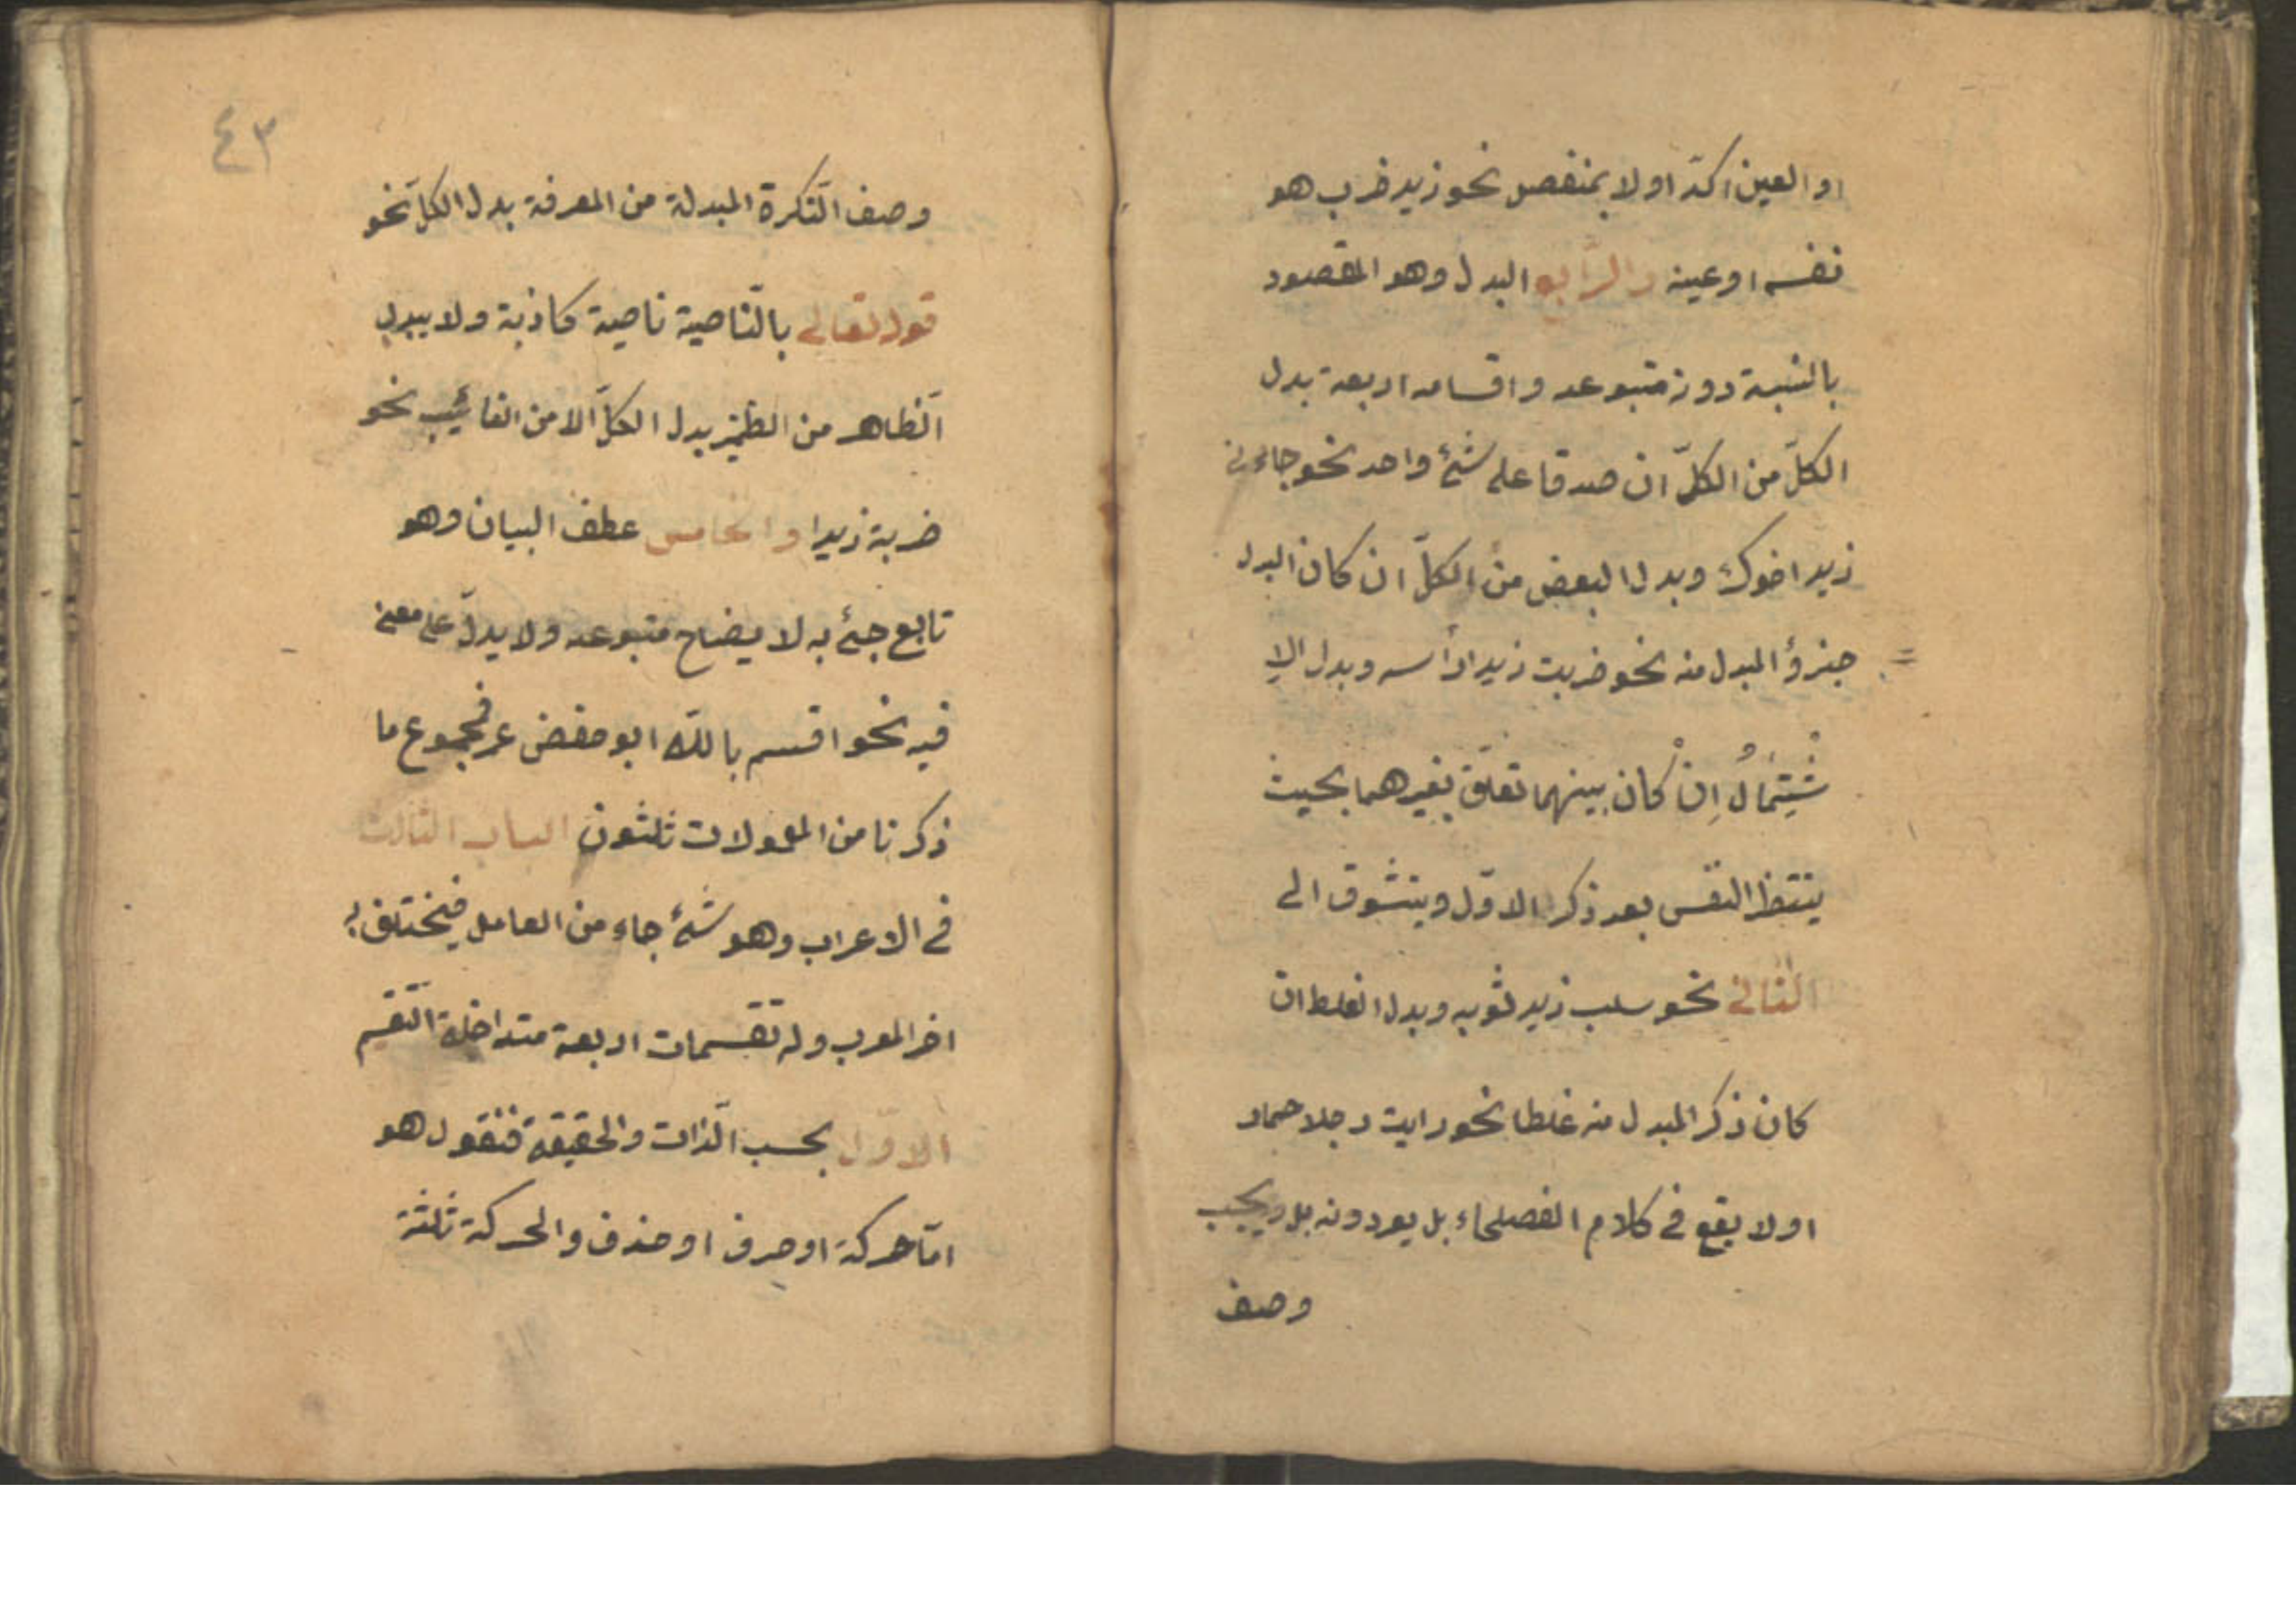 او العين اكدّ اولا بمنفصل نحو زيد ضرب هو
نفسه او عينه والرّابع البدل وهو المقصود
بالنسبة دون متبوعه واقسامه اربعة بدل
الكلّ من الكلّ ان صدقا على شئ واحد نحو جاءنى
زيد اخوك وبدل البعض من الكلّ ان كان البدل
جزؤ المبدل منه نحو ضربت زيدا رأسه وبدل الا
شْتِمَالُ اِنْ كان بينهما تعلّق بغيرهما بحيث
ينتظر النفس بعد ذكر الاوّل ويتشوق الى
الثانى نحو سلب زيد ثوبه وبدل الغلط ان
كان ذكر المبدل منه غلطا نحو رايت رجلا حمار
اولا يقع فى كلام الفصلحاء بل يوردونه بل ويجب
وصف
٤٣
وصف النّكرة المبدلة من المعرفة بدل الكلّ نحو
قوله تعالى بالنّاصية ناصية كاذبة ولا يبدل
الظّاهر من الضمير بدل الكلّ الا من الغائيب نحو
ضربة زيدا والخامس عطف البيان وهو
تابع جئ به لا يضاح متبوعه ولا يدلّ على معنى
فيه نحو اقسم باللّه ابو حفص عمر فمجموع ما
ذكرنا من المعمولات ثلثون الباب الثالث
فى الاعراب وهو شئ جاء من العامل فيختلف به
اخر المعرب وله تقسيمات اربعة متداخلة التّقسيم
الاوّل بحسب الذّات والحقيقة فنقول هو
امّا حركة او حرف او حذف والحركة ثلثة